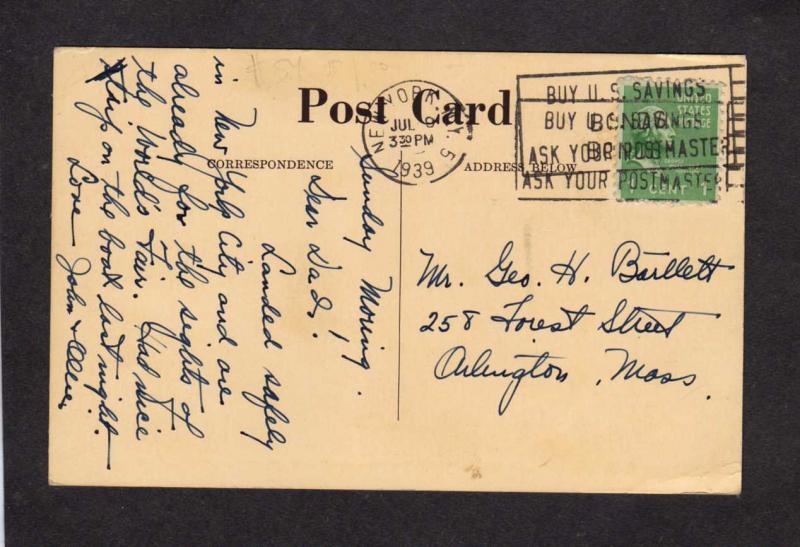 Post Card
CORRESPONDENCE
ADDRESS BELOW
NEW YORK, N.Y. 5
JUL
9
3 30 PM
1939
BUY U.S. SAVINGS
BUY U.S. SAVINGS
BONDS
ASK YOUR POSTMASTER
ASK YOUR POSTMASTER
UNITED
STATES
POSTAGE
1 CENT 1
Sunday Morning.
Dear Dad,
Landed safely
in New York City and are
already for the sights of
the World's Fair. Had nice
trip on the boat last night.
Love John &
Mr. Geo. H. Bartlett
258 Forest Street
Arlington, Mass.